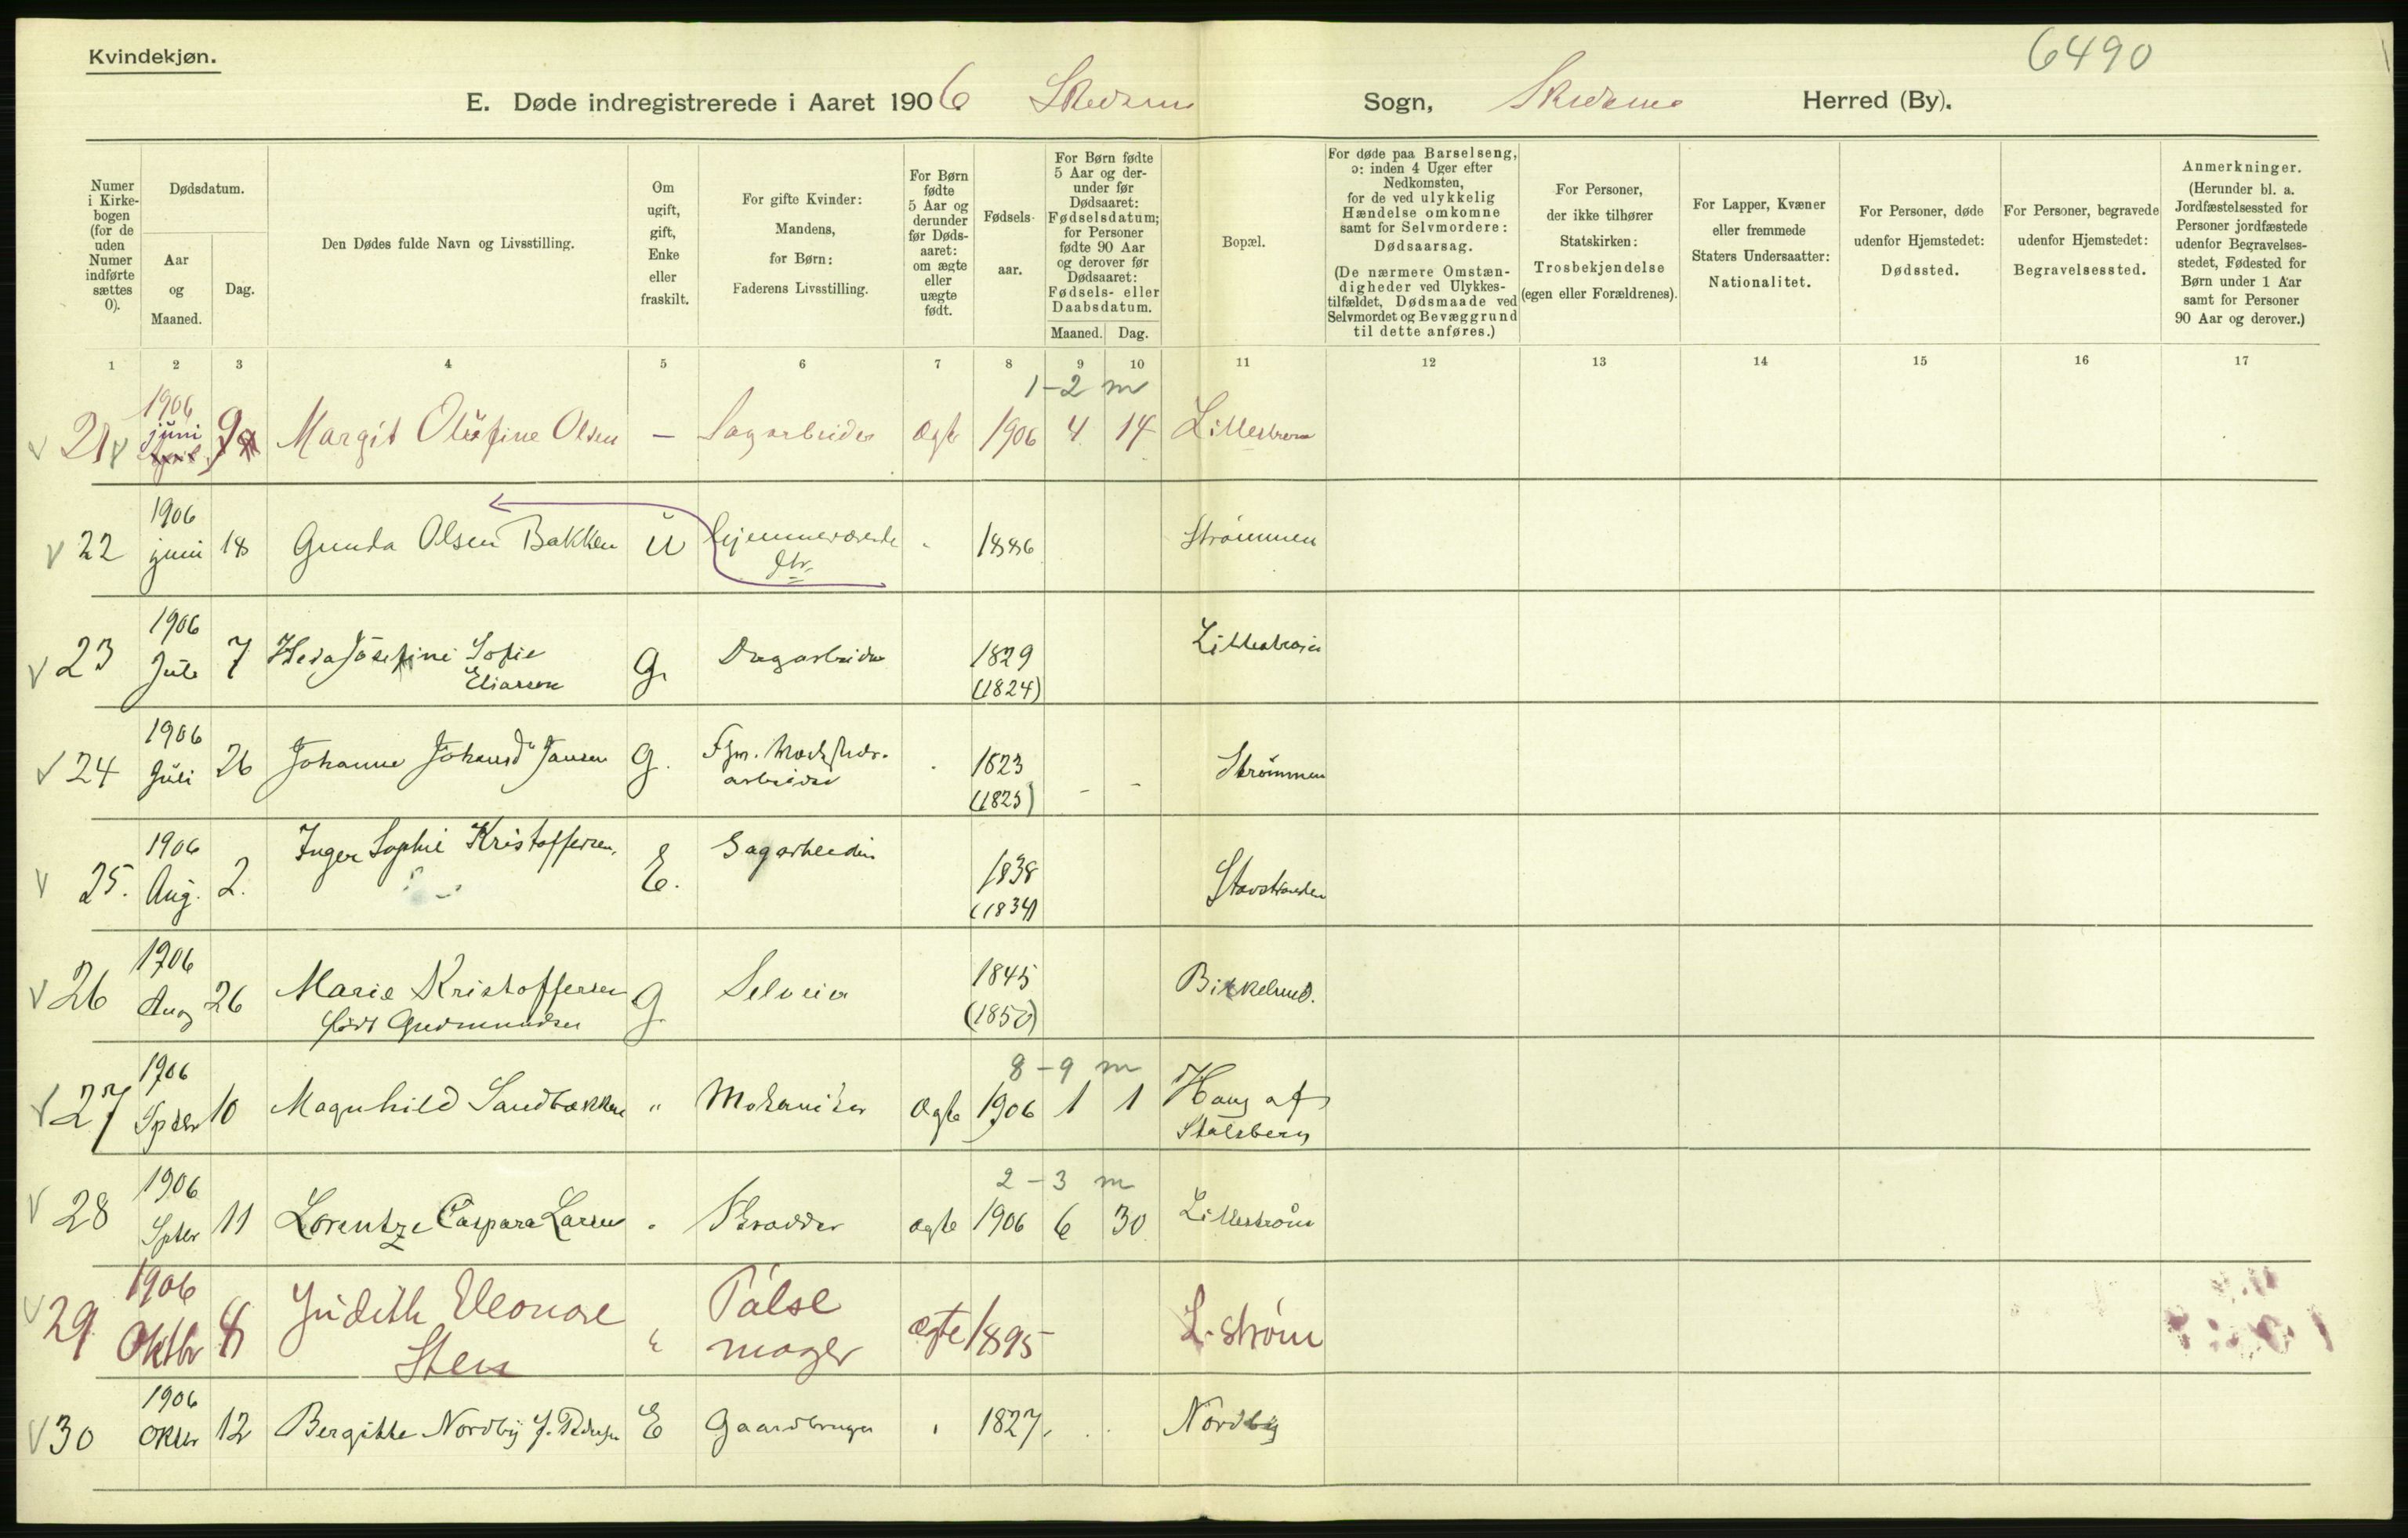 Kvindekjøn.
6490
E. Døde indregistrerede i Aaret 1906 Skedsmo Sogn, Skedsmo Herred (By).
Numer i Kirkebogen (for de uden Numer indførte sættes 0).
Dødsdatum.
Aar og Maaned.
Dag.
Den Dødes fulde Navn og Livsstilling.
Om ugift, gift, Enke eller fraskilt.
For gifte Kvinder: Mandens, for Børn: Faderens Livsstilling.
For Børn fødte 5 Aar og derunder før Døds-aaret: om ægte eller uægte født.
Fødsels-aar.
For Børn fødte 5 Aar og der-under før Dødsaaret: Fødselsdatum; for Personer fødte 90 Aar og derover før Dødsaaret: Fødsels- eller Daabsdatum.
Maaned. Dag.
Bopæl.
For døde paa Barselseng, ɔ: inden 4 Uger efter Nedkomsten, for de ved ulykkelig Hændelse omkomne samt for Selvmordere: Dødsaarsag.
(De nærmere Omstæn-digheder ved Ulykkes-tilfældet, Dødsmaade ved Selvmordet og Bevæggrund til dette anføres.)
For Personer, der ikke tilhører Statskirken: Trosbekjendelse (egen eller Forældrenes).
For Lapper, Kvæner eller fremmede Staters Undersaatter: Nationalitet.
For Personer, døde udenfor Hjemstedet: Dødssted.
For Personer, begravede udenfor Hjemstedet: Begravelsessted.
Anmerkninger.
(Herunder bl. a. Jordfæstelsessted for Personer jordfæstede udenfor Begravelses-stedet, Fødested for Børn under 1 Aar samt for Personer 90 Aar og derover.)
1 2 3 4 5 6 7 8 9 10 11 12 13 14 15 16 17
1-2 m
21 1906 juni 9 Margit Olufine Olsen - Sagarbeider Ægte 1906 4 14 Lillestrøm
22 1906 juni 18 Gunda Olsen Bakken U hjemmeværende dtr. 1886 Strømmen
23 1906 Juli 7 Josefine Sofie Eliassen G. Dagarbeider 1829 (1824) Lillestrøm
24 1906 Juli 26 Johanne Johansd Jansen G. Fhv. arbeider 1823 (1825) Strømmen
25. 1906 Aug. 2. Inger Sophie Kristoffersen, E. Sagarbeider 1838 (1834)
26 1906 Aug 26 Marie Kristoffersen født Gudmundsen G Selveier 1845 (1850) Birkelund.
8-9 m
27 1906 Sptbr 10 Magnhild Sandbækken " Mekaniker Ægte 1906 1 1 Haug af Stalsberg
2-3 m
28 1906 Sptbr 11 Lorentze Caspara Larsen " Skrædder ægte 1906 6 30 Lillestrøm
29 1906 Oktbr 8 Judith Eleonore Sten " Pølse mager ægte 1895 L.strøm
30 1906 Oktbr 12 Bergitte Nordby f. Pedersen E Gaardbruger 1827. Nordby